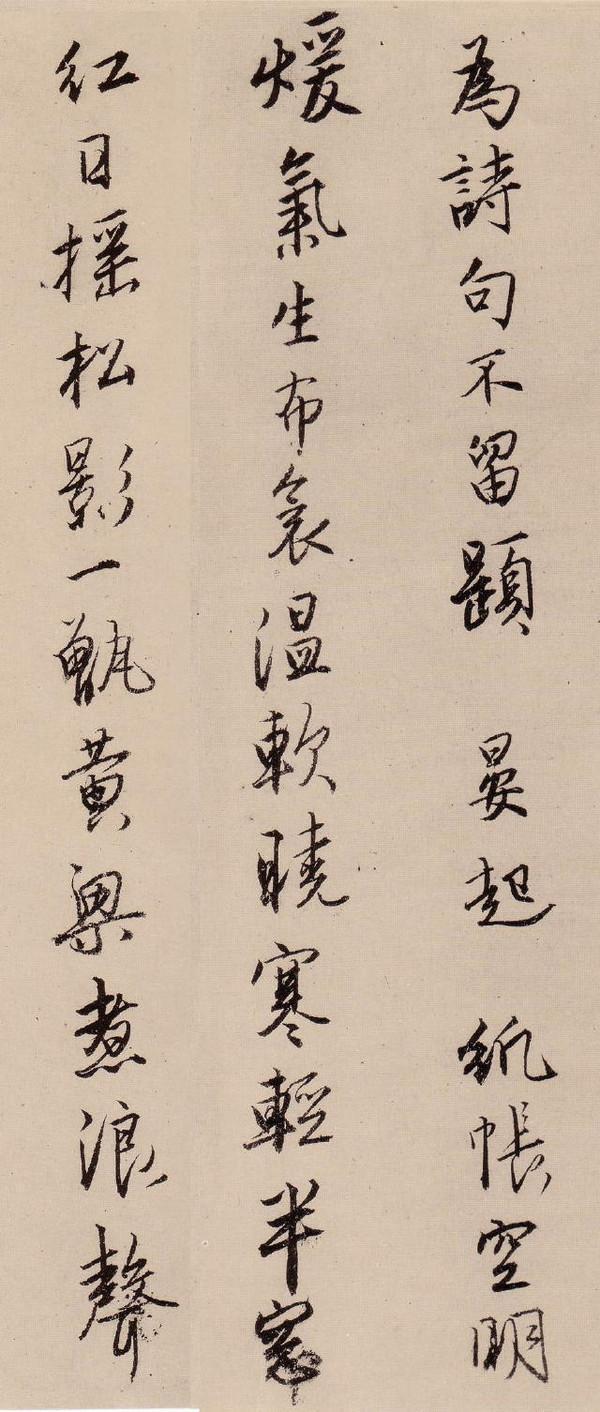 為詩句不留題 晏起 紙帳空明
煖氣生布衾温軟曉寒輕半窓
紅日摇松影一甑黄粱煮浪聲